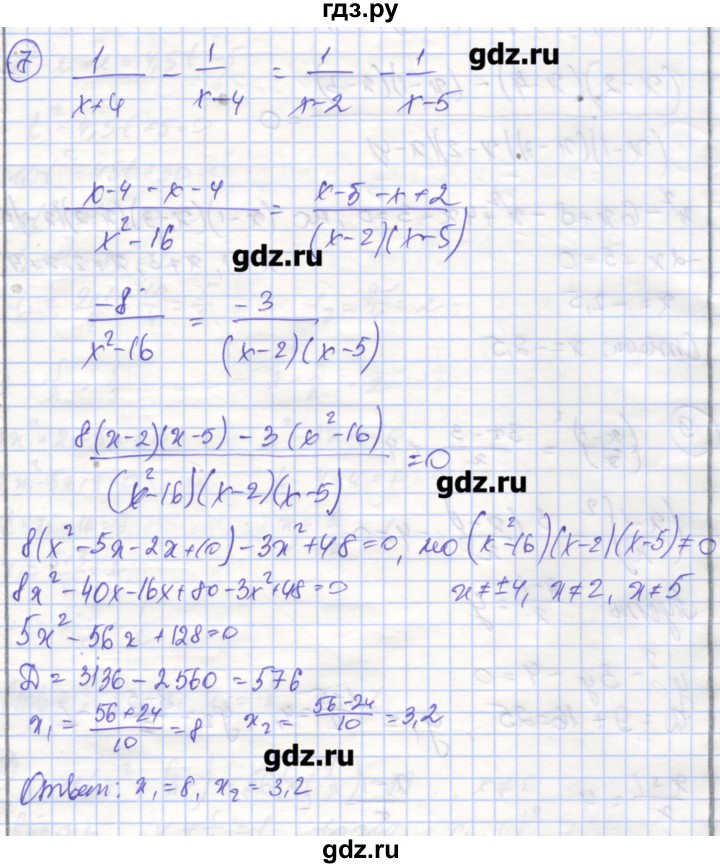 гдз.ру
7 1/(x+4) - 1/(x-4) = 1/(x-2) - 1/(x-5)
gdz.ru
(x-4-x-4)/(x²-16) = (x-5-x+2)/((x-2)(x-5))
gdz.ru
-8/(x²-16) = -3/((x-2)(x-5))
(8(x-2)(x-5) - 3(x²-16))/((x²-16)(x-2)(x-5)) = 0
gdz.ru
8(x²-5x-2x+10)-3x²+48=0, но (x²-16)(x-2)(x-5)≠0
8x²-40x-16x+80-3x²+48=0 x≠±4, x≠2, x≠5
5x²-56x+128=0
Д = 3136-2560=576
x₁ = (56+24)/10 = 8 x₂ = (56-24)/10 = 3,2
gdz.ru
Ответ: x₁=8, x₂=3,2